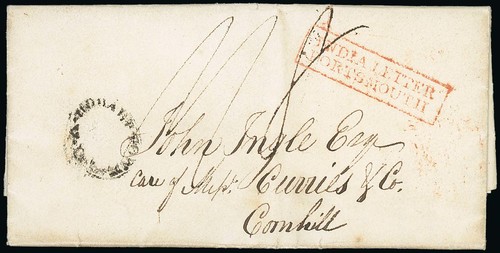 INDIA LETTER
PORTSMOUTH
HOBART TOWN
John Ingle Esq
Care of Messrs. Curries & Co.
Cornhill